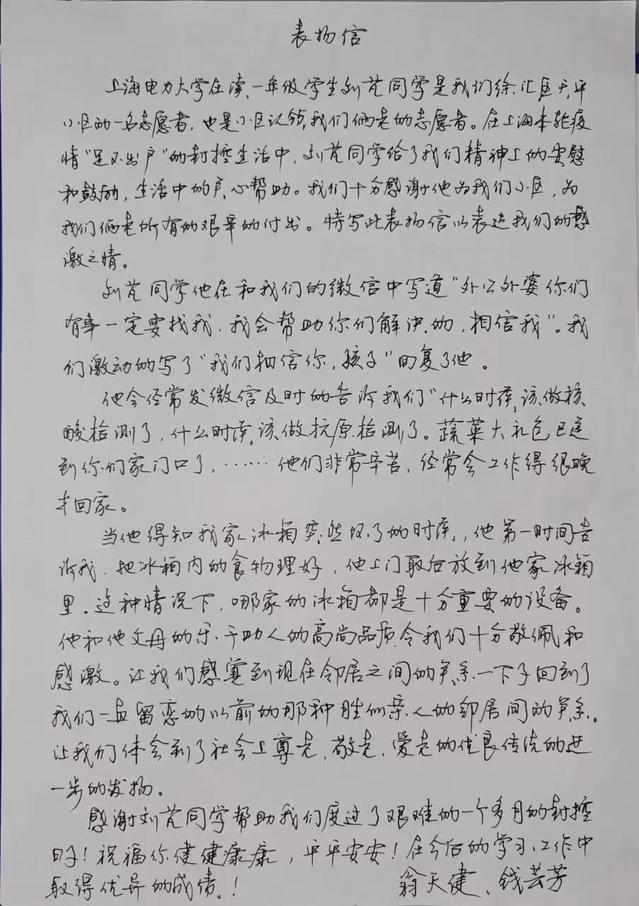 表扬信
上海电力大学在读一年级学生刘芃同学是我们徐汇区天平
小区的一名志愿者，也是小区认领我们俩老的志愿者。在上海本轮疫
情"足不出户"的封控生活中，刘芃同学给了我们精神上的安慰
和鼓励，生活中的尽心帮助。我们十分感谢他为我们小区，为
我们俩老所有的艰辛的付出。特写此表扬信以表达我们的感
激之情。
刘芃同学他在和我们的微信中写道"外公外婆你们
有事一定要找我，我会帮助你们解决的，相信我"。我
们激动的写了"我们相信你，孩子"回复了他。
他会经常发微信及时的告诉我们"什么时候该做核
酸检测了，什么时候该做抗原检测了。蔬菜大礼包已送
到你们家门口了，……他们非常辛苦，经常会工作得很晚
才回家。
当他得知我家冰箱突然坏了的时候，他第一时间告
诉我，把冰箱内的食物理好，他上门取后放到他家冰箱
里。这种情况下，哪家的冰箱都是十分重要的设备。
他和他父母的乐于助人的高尚品质令我们十分敬佩和
感激。让我们感觉到现在邻居之间的关系一下子回到了
我们一直留恋的以前的那种胜似亲人的邻居间的关系。
让我们体会到了社会上尊老、敬老、爱老的优良传统的进
一步的发扬。
感谢刘芃同学帮助我们度过了艰难的一个多月的封控
日子！祝福你健健康康，平平安安！在今后的学习、工作中
取得优异的成绩！ 翁天健、钱芸芳